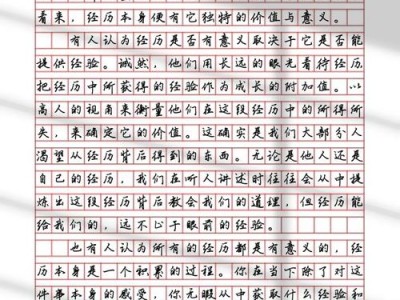 看来，经历本身便有它独特的价值与意义。
有人认为经历是否有意义取决于它是否能
提供经验。诚然，他们用长远的眼光看待经历，
把经历中所获得的经验作为成长的附加值。以
高人的视角来衡量他们在这段经历中的所得所
失，来确定它的价值。这确实是我们大部分人
渴望从经历背后得到的东西。无论是他人还是
自己的经历，我们在听人讲述时往往会从中提
炼出这段经历背后教会我们的道理，但经历能
给我们的，远不止于眼前的经验。
也有人认为所有的经历都是有意义的，经
历本身是一个积累的过程。你在当下除了对这
件事本身的感受，你无暇从中获取什么经验和